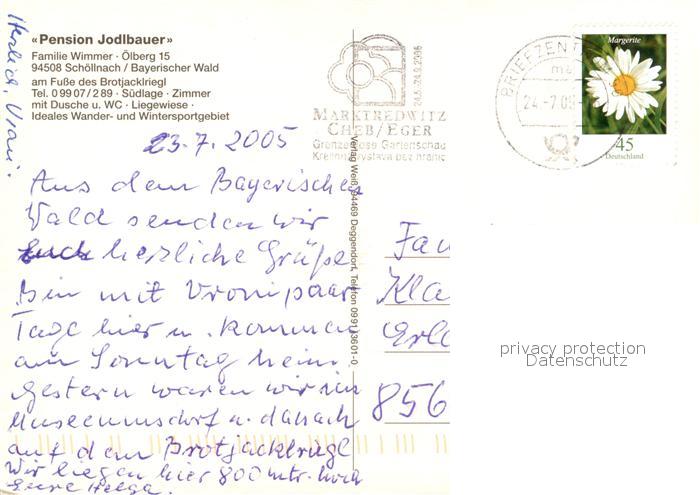 «Pension Jodlbauer»
Familie Wimmer · Ölberg 15
94508 Schöllnach / Bayerischer Wald
am Fuße des Brotjacklriegl
Tel. 0 99 07 / 2 89 · Südlage · Zimmer
mit Dusche u. WC · Liegewiese ·
Ideales Wander- und Wintersportgebiet
23.7.2005
Aus dem Bayerischen
Wald senden wir
Euch herzliche Grüße
Bin mit Vroni paar
Tage hier u. kommen
am Sonntag heim.
Gestern waren wir im
Museumsdorf u. danach
auf dem Brotjacklrigl
Wir liegen hier 800 mtr. hoch
Eure Helga.
Herzlich,
Verlag Weiß, 94469 Deggendorf, Telefon 0991/3601-0
MARKTREDWITZ
CHEB/EGER
Grenzenlose Gartenschau
24.5.-24.9.2006
BRIEFZENT
24.-7.05
Margerite
45
Deutschland
Fam
Kla
Erl
856
privacy protection
Datenschutz